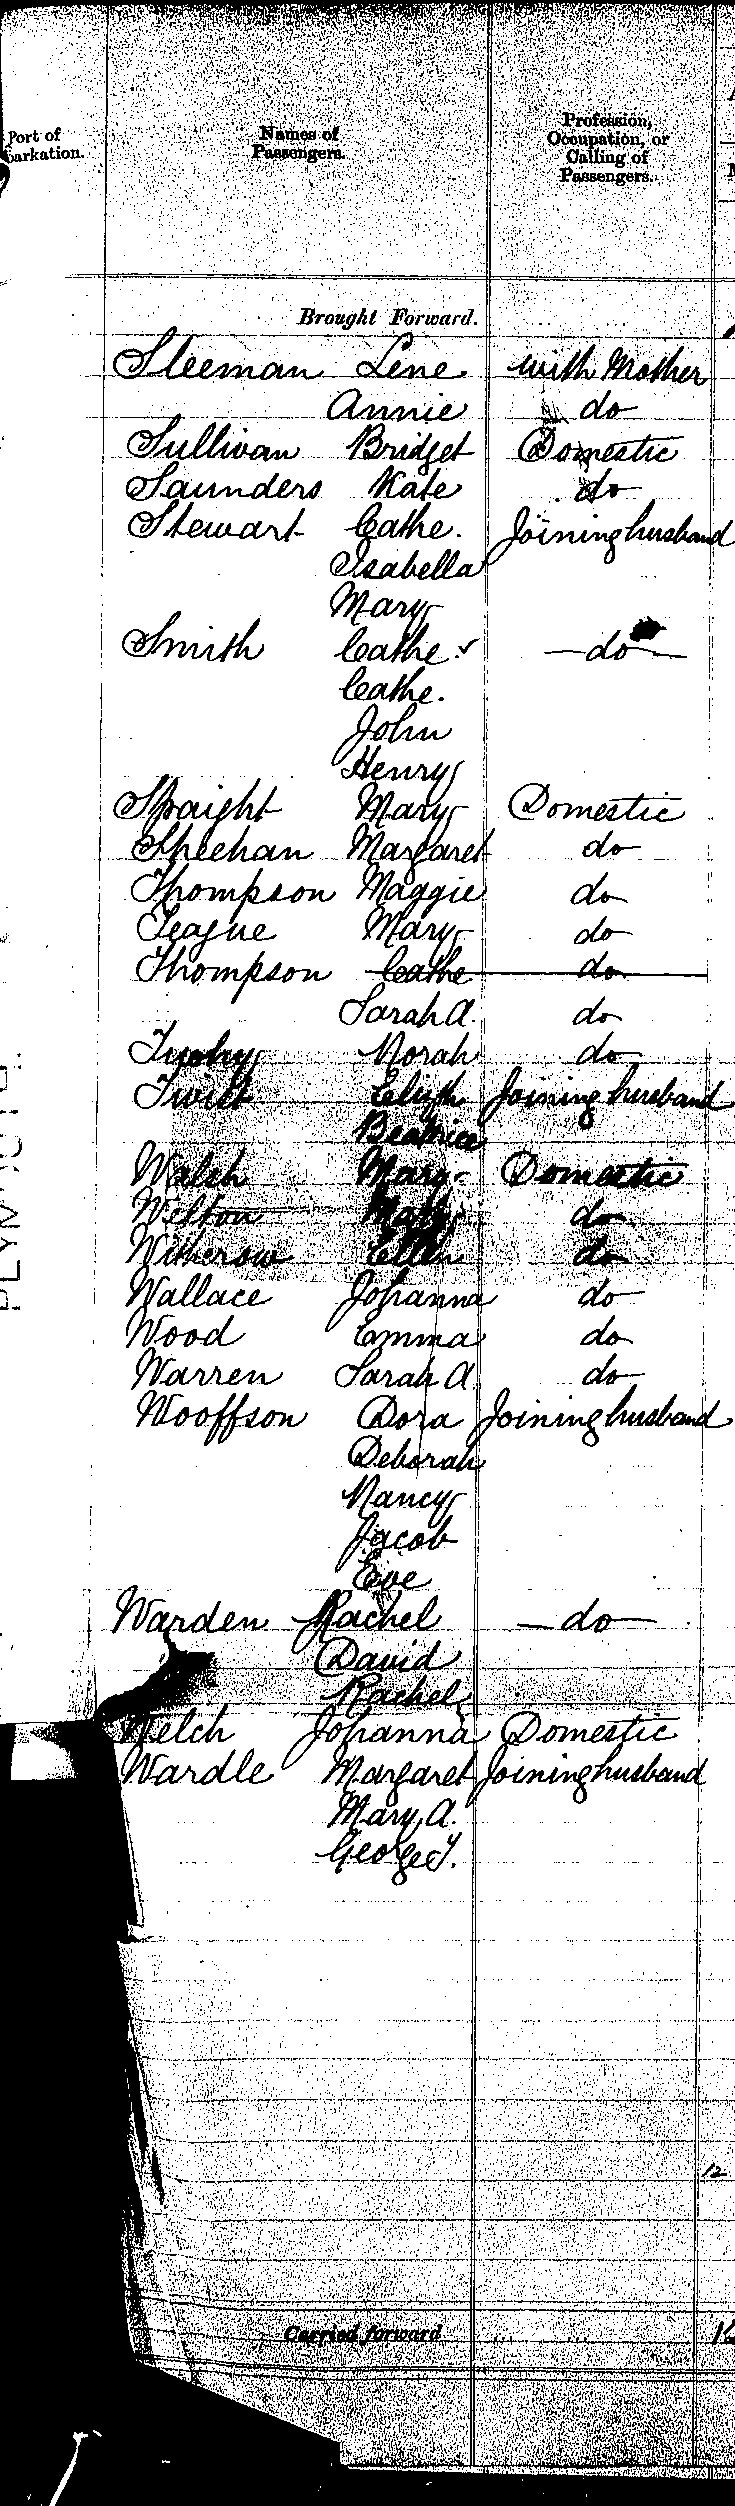 Port of
barkation.
Names of
Passengers.
Profession,
Occupation, or
Calling of
Passengers.
Brought Forward.
Sleeman Lene with Mother
Annie do
Sullivan Bridget Domestic
Saunders Kate do
Stewart Cathe. Joining husband
Isabella
Mary
Smith Cathe. do
Cathe.
John
Henry
Spaight Mary Domestic
Sheehan Margaret do
Thompson Maggie do
Teague Mary do
Thompson Cathe do
Sarah A. do
Norah do
Joining husband
Beatrice
Walsh Mary Domestic
Welton Mary do
Witherow Ellen do
Wallace Johanna do
Wood Emma do
Warren Sarah A. do
Wooffson Dora Joining husband
Deborah
Nancy
Jacob
Eve
Warden Rachel do
David
Rachel
Welch Johanna Domestic
Wardle Margaret Joining husband
Mary A.
George T.
12
Carried forward